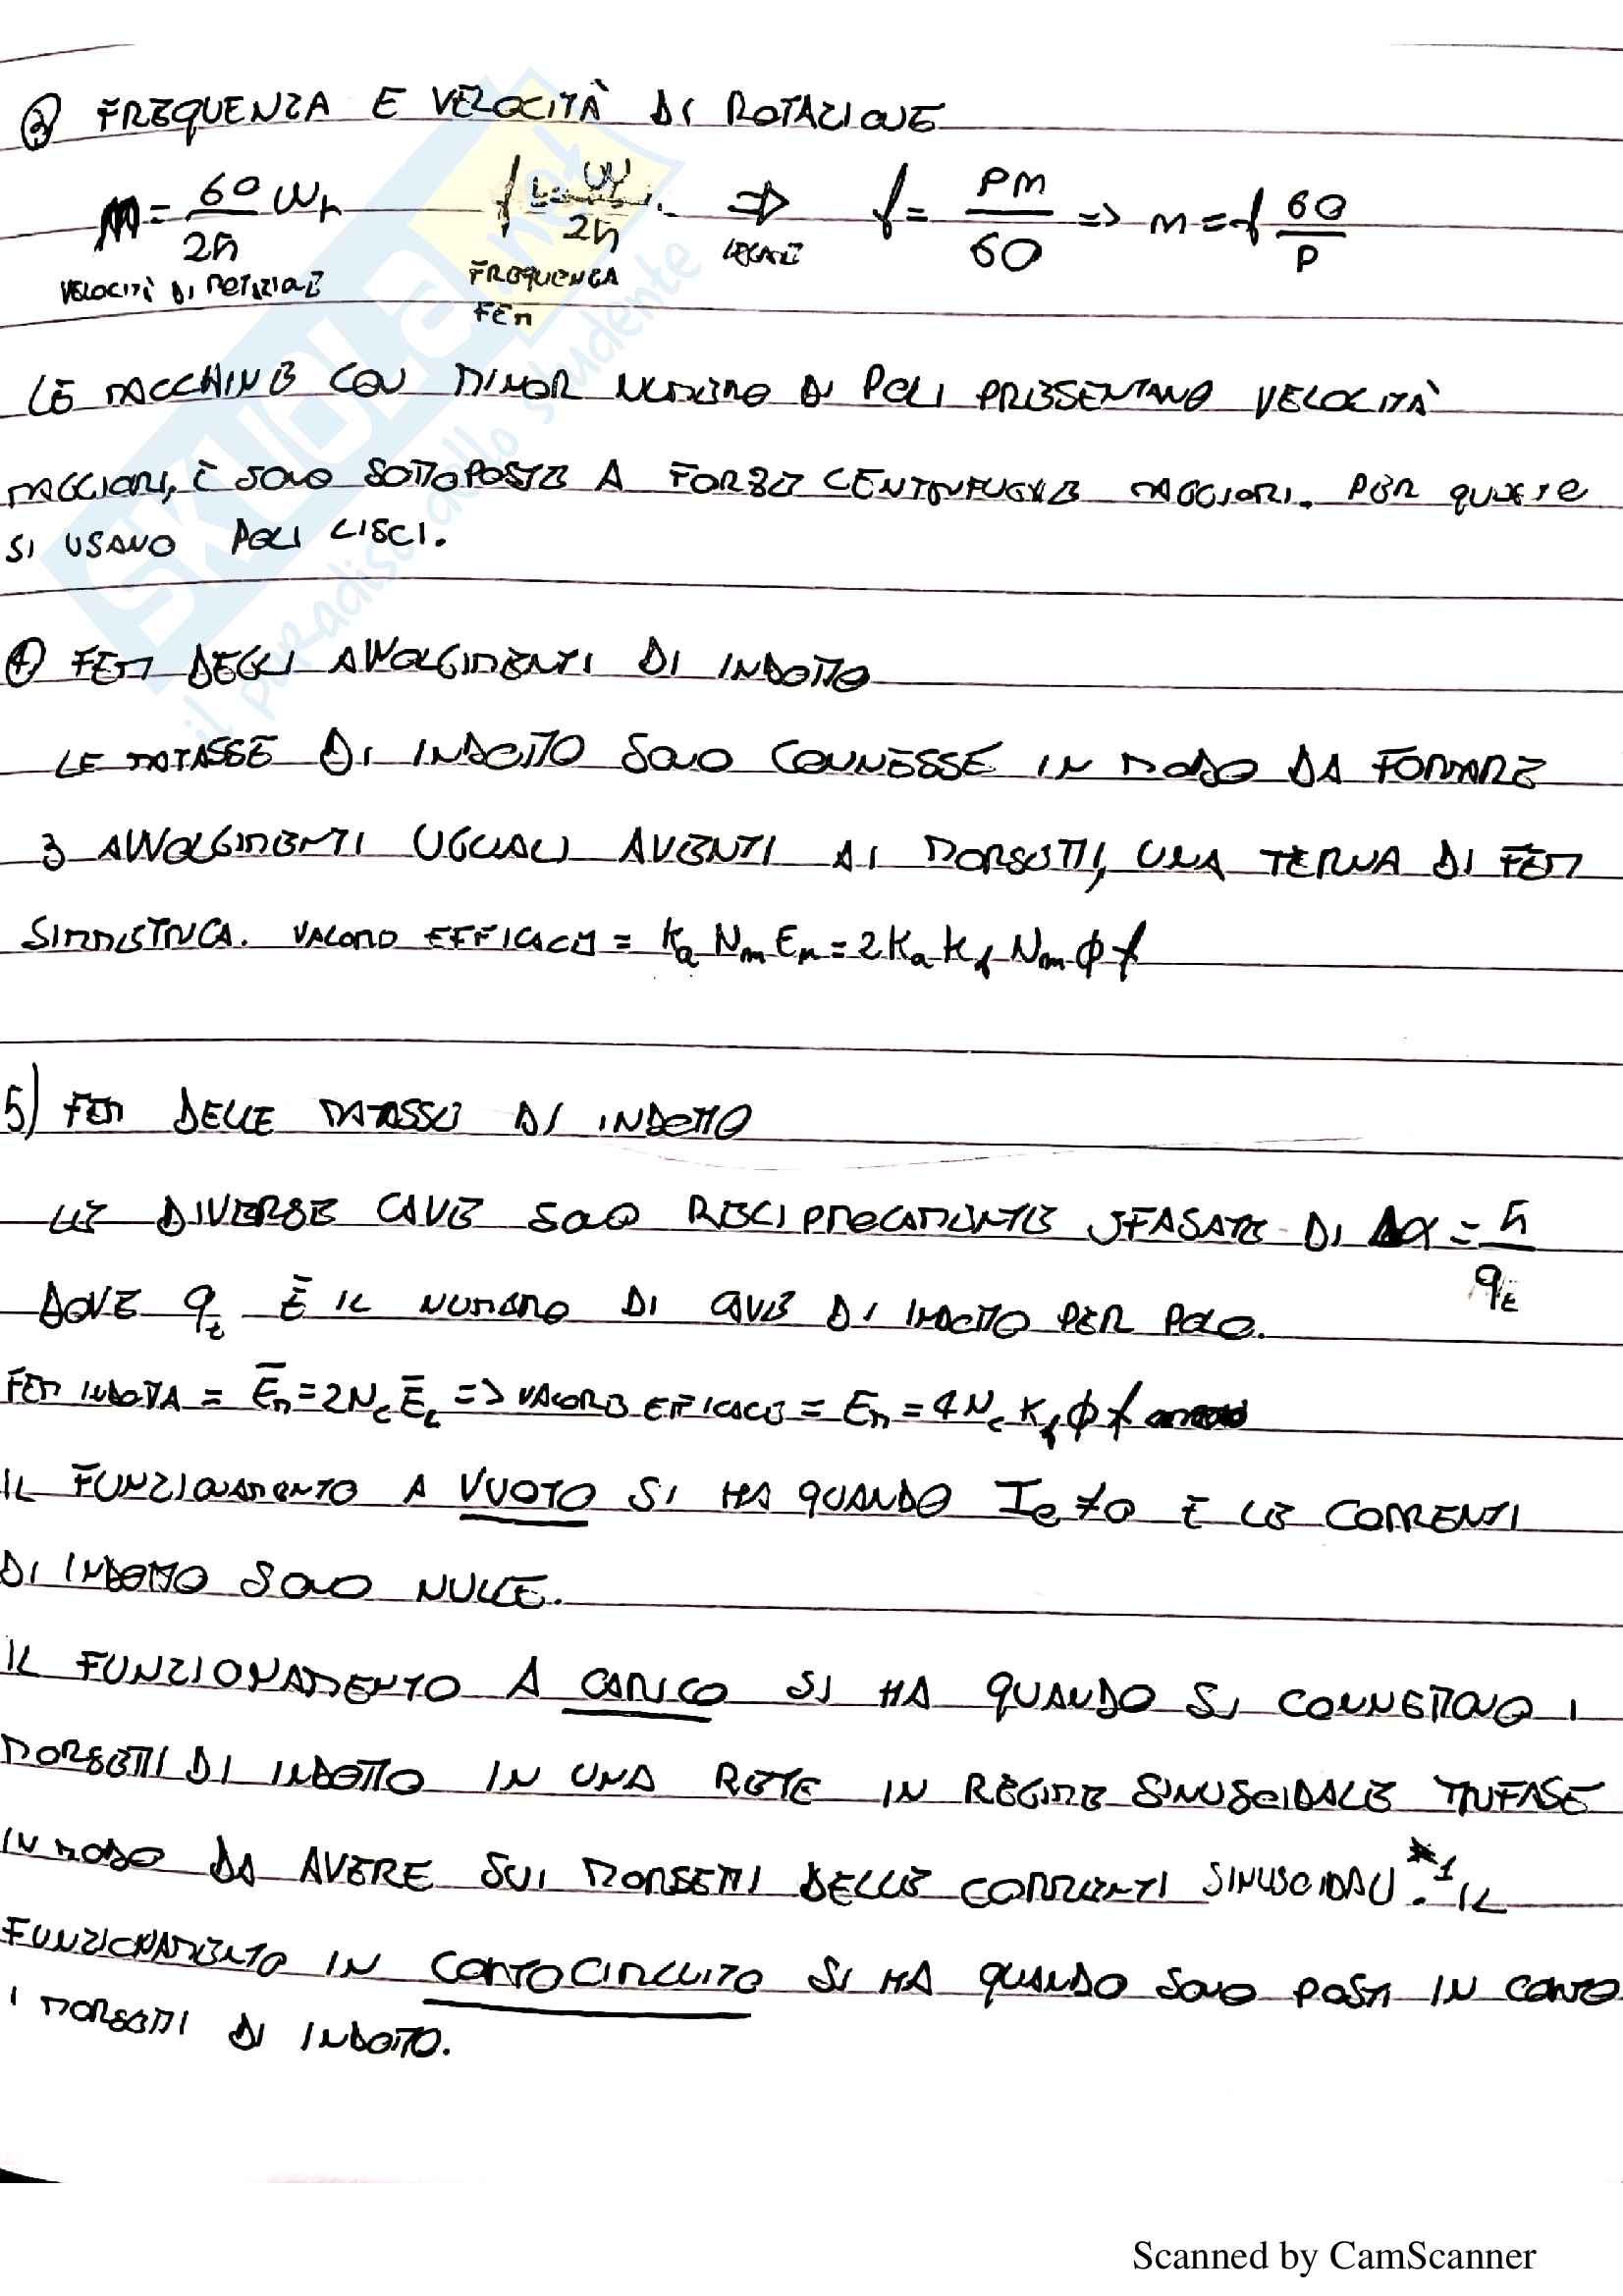 3) FREQUENZA E VELOCITÀ DI ROTAZIONE
n = 60/2π ωr f = ω/2π ⇒ f = pn/60 => n = f 60/p
VELOCITÀ DI ROTAZIONE FREQUENZA LEGAME
FEM
LE MACCHINE CON MINOR NUMERO DI POLI PRESENTANO VELOCITÀ
MAGGIORI, E SONO SOTTOPOSTE A FORZE CENTRIFUGHE MAGGIORI. PER QUESTE
SI USANO POLI LISCI.
4) FEM DEGLI AVVOLGIMENTI DI INDOTTO
LE MATASSE DI INDOTTO SONO CONNESSE IN MODO DA FORMARE
3 AVVOLGIMENTI UGUALI AVENTI AI MORSETTI, UNA TERNA DI FEM
SIMMETRICA. VALORE EFFICACE = Ka Nm Em = 2 Ka Kf Nm Φ f
5) FEM DELLE MATASSE DI INDOTTO
LE DIVERSE CAVE SONO RECIPROCAMENTE SFASATE DI Δα = π/qt
DOVE qt È IL NUMERO DI CAVE DI INDOTTO PER POLO.
FEM INDOTTA = Ēm = 2Nc Ēc => VALORE EFFICACE = Em = 4 Nc Kf Φ f
IL FUNZIONAMENTO A VUOTO SI HA QUANDO Ie ≠ 0 E LE CORRENTI
DI INDOTTO SONO NULLE.
IL FUNZIONAMENTO A CARICO SI HA QUANDO SI CONNETTONO I
MORSETTI DI INDOTTO IN UNA RETE IN REGIME SINUSOIDALE TRIFASE
IN MODO DA AVERE SUI MORSETTI DELLE CORRENTI SINUSOIDALI.*1 IL
FUNZIONAMENTO IN CORTOCIRCUITO SI HA QUANDO SONO POSTI IN CORTO
I MORSETTI DI INDOTTO.
SKUOLA.net
il paradiso dello studente
Scanned by CamScanner